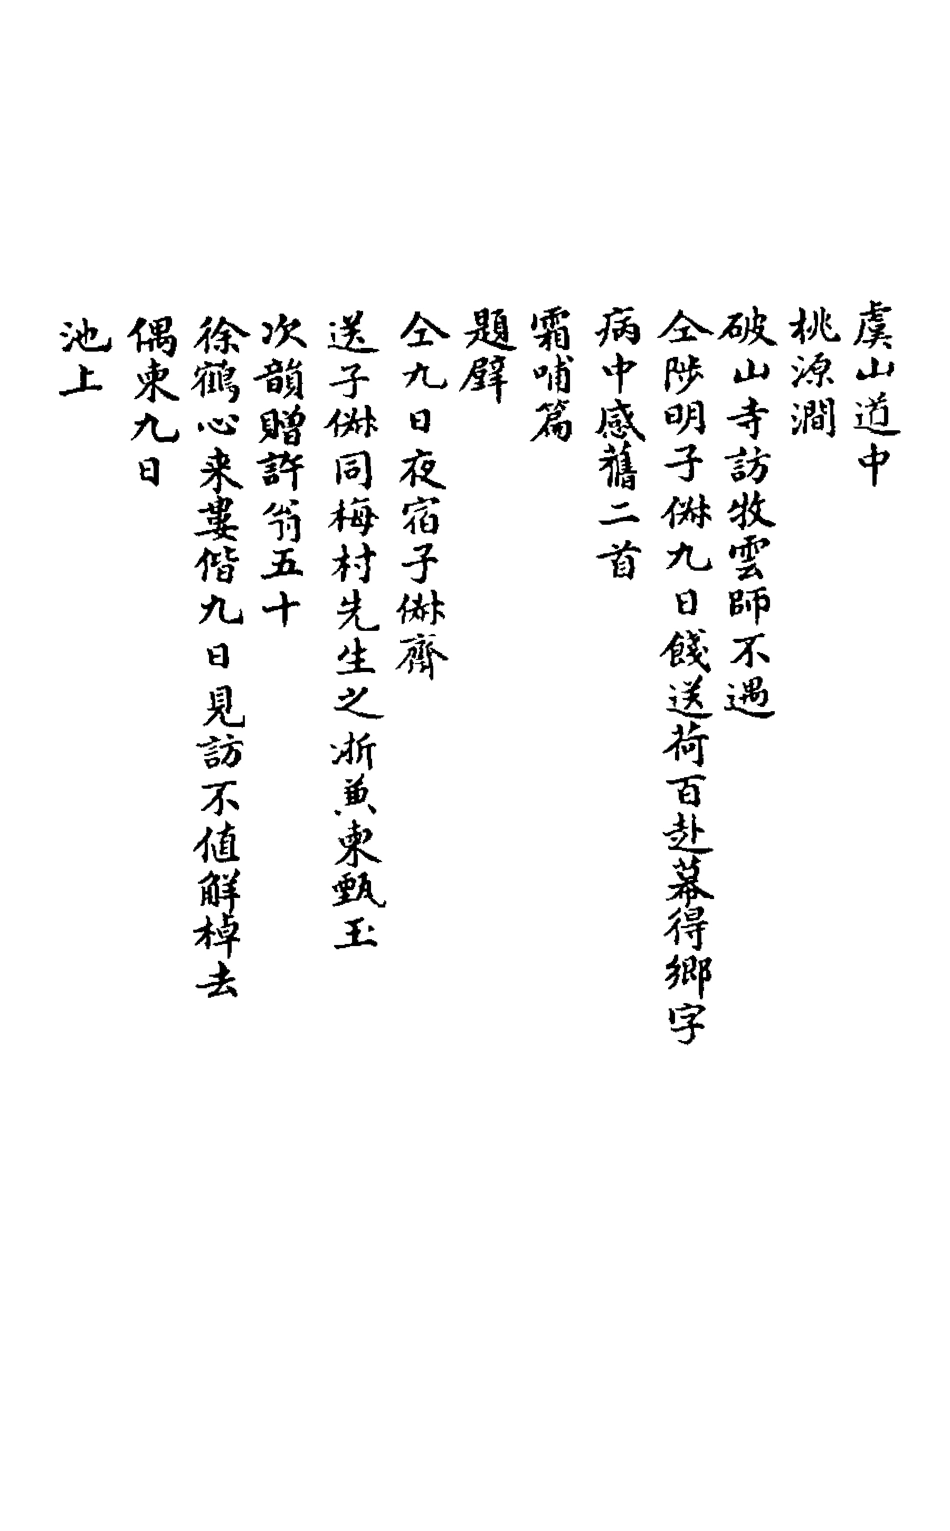 虞山道中
桃源澗
破山寺訪牧雲師不遇
仝陟明子俶九日餞送荷百赴幕得鄉字
病中感舊二首
霜哺篇
題壁
仝九日夜宿子俶齋
送子俶同梅村先生之浙兼柬甄玉
次韻贈許翁五十
徐鶴心来婁偕九日見訪不值解棹去
偶柬九日
池上